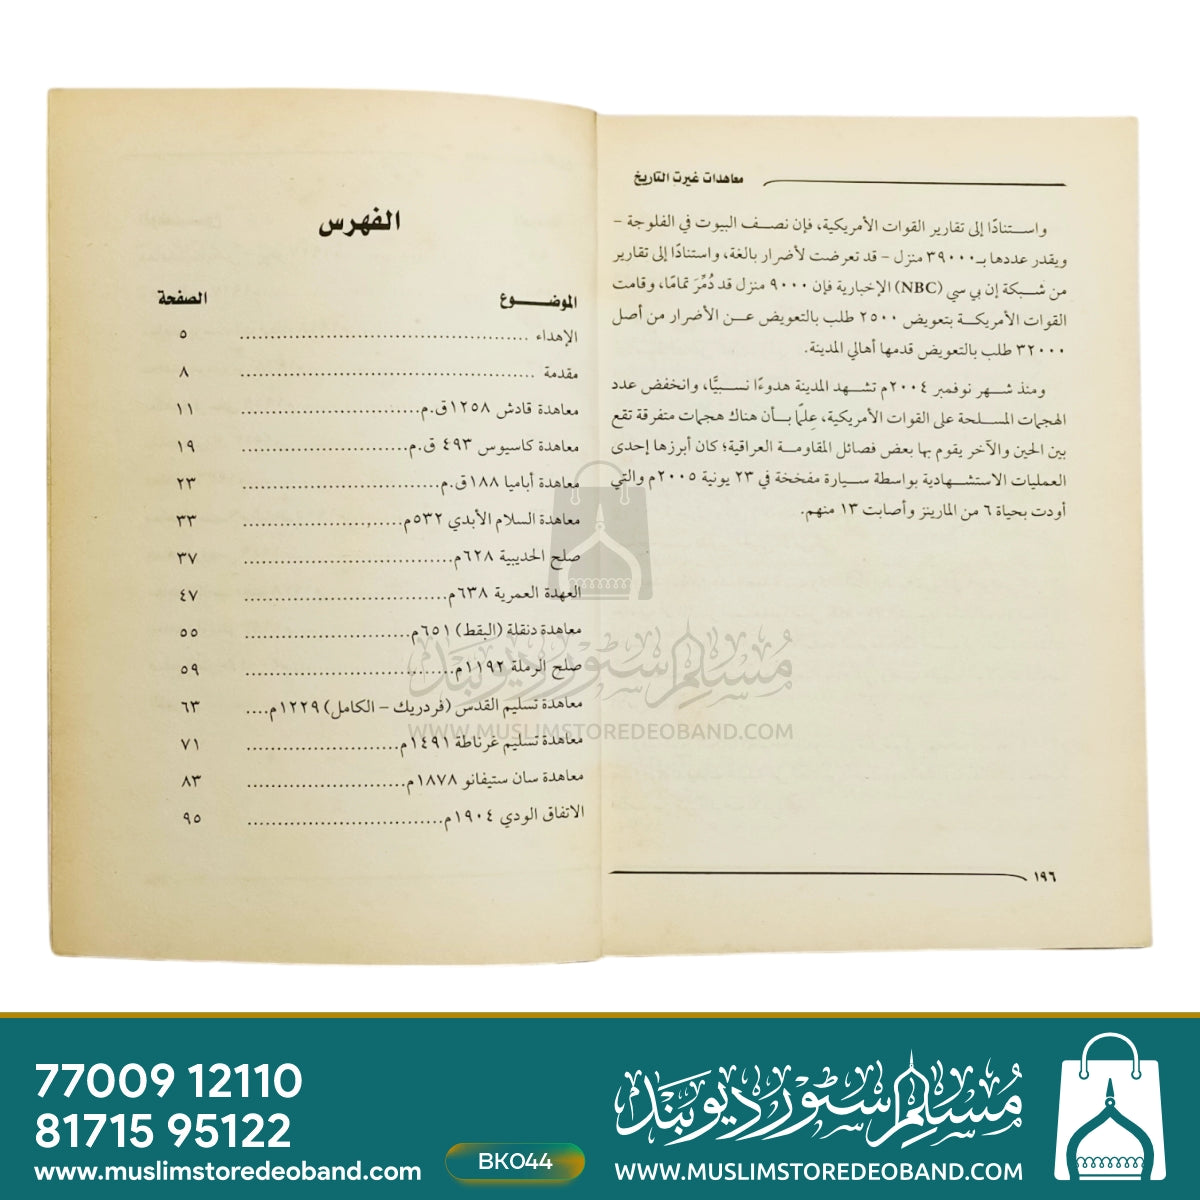 معاهدات غيرت التاريخ
واستنادًا إلى تقارير القوات الأمريكية، فإن نصف البيوت في الفلوجة -
ويقدر عددها بـ ٣٩٠٠٠ منزل - قد تعرضت لأضرار بالغة، واستنادًا إلى تقارير
من شبكة إن بي سي (NBC) الإخبارية فإن ٩٠٠٠ منزل قد دُمِّرَ تمامًا، وقامت
القوات الأمريكية بتعويض ٢٥٠٠ طلب بالتعويض عن الأضرار من أصل
٣٢٠٠٠ طلب بالتعويض قدمها أهالي المدينة.
ومنذ شهر نوفمبر ٢٠٠٤م تشهد المدينة هدوءًا نسبيًّا، وانخفض عدد
الهجمات المسلحة على القوات الأمريكية، عِلمًا بأن هناك هجمات متفرقة تقع
بين الحين والآخر يقوم بها بعض فصائل المقاومة العراقية؛ كان أبرزها إحدى
العمليات الاستشهادية بواسطة سيارة مفخخة في ٢٣ يونية ٢٠٠٥م والتي
أودت بحياة ٦ من المارينز وأصابت ١٣ منهم.
١٩٦
الفهرس
الموضوع الصفحة
الإهداء ٥
مقدمة ٨
معاهدة قادش ١٢٥٨ق.م ١١
معاهدة كاسيوس ٤٩٣ ق.م ١٩
معاهدة أباميا ١٨٨ق.م ٢٣
معاهدة السلام الأبدي ٥٣٢م ٣٣
صلح الحديبية ٦٢٨م ٣٧
العهدة العمرية ٦٣٨م ٤٧
معاهدة دنقلة (البقط) ٦٥١م ٥٥
صلح الرملة ١١٩٢م ٥٩
معاهدة تسليم القدس (فردريك - الكامل) ١٢٢٩م ٦٣
معاهدة تسليم غرناطة ١٤٩١م ٧١
معاهدة سان ستيفانو ١٨٧٨م ٨٣
الاتفاق الودي ١٩٠٤م ٩٥
مسلم سٹور دیوبند
WWW.MUSLIMSTOREDEOBAND.COM
77009 12110
81715 95122
www.muslimstoredeoband.com
BK044
مسلم سٹور دیوبند
WWW.MUSLIMSTOREDEOBAND.COM